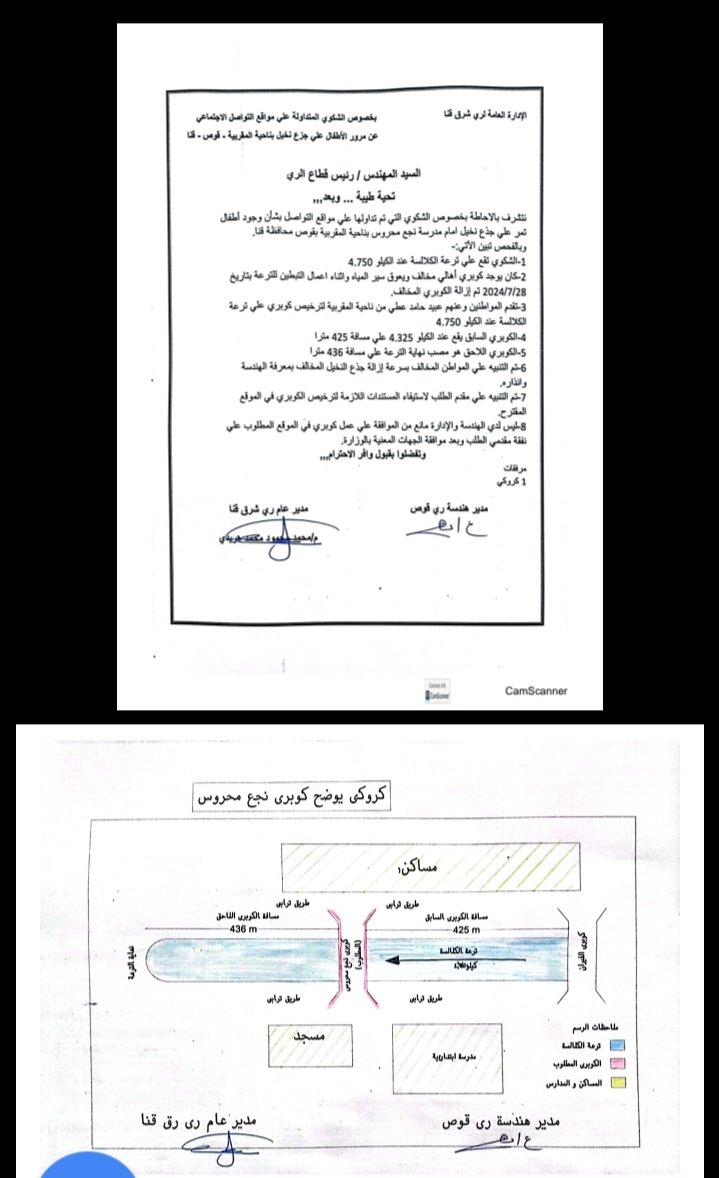 الإدارة العامة لري شرق قنا
بخصوص الشكوي المتداولة علي مواقع التواصل الاجتماعي
عن مرور الأطفال علي جزع نخيل بناحية المقربية - قوص - قنا
السيد المهندس / رئيس قطاع الري
تحية طيبة ... وبعد,,,
نتشرف بالاحاطة بخصوص الشكوي التي تم تداولها علي مواقع التواصل بشأن وجود أطفال
تمر علي جذع نخيل امام مدرسة نجع محروس بناحية المقربية بقوص محافظة قنا.
وبالفحص تبين الأتي:-
1-الشكوي تقع علي ترعة الكلالسة عند الكيلو 4.750
2-كان يوجد كوبري أهالي مخالف ويعوق سير المياه واثناء اعمال التبطين للترعة بتاريخ
2024/7/28 تم إزالة الكوبري المخالف.
3-تقدم المواطنين وعنهم عبيد حامد عطي من ناحية المقربية لترخيص كوبري علي ترعة
الكلالسة عند الكيلو 4.750
4-الكوبري السابق يقع عند الكيلو 4.325 علي مسافة 425 مترا
5-الكوبري اللاحق هو مصب نهاية الترعة علي مسافة 436 مترا
6-تم التنبيه علي المواطن المخالف بسرعة إزالة جذع النخيل المخالف بمعرفة الهندسة
وانذاره.
7-تم التنبيه علي مقدم الطلب لاستيفاء المستندات اللازمة لترخيص الكوبري في الموقع
المقترح.
8-ليس لدي الهندسة والإدارة مانع من الموافقة علي عمل كوبري في الموقع المطلوب علي
نفقة مقدمي الطلب وبعد موافقة الجهات المعنية بالوزارة.
وتفضلوا بقبول وافر الاحترام,,,
مرفقات
1 كروكي
مدير هندسة ري قوص
مدير عام ري شرق قنا
م/محمد محمود محمد هريدي
CamScanner
كروكى يوضح كوبرى نجع محروس
مساكن
طريق ترابى
طريق ترابى
مسافة الكوبرى السابق
مسافة الكوبرى اللاحق
425 m
436 m
كوبرى نجع محروس
(المطلوب)
ترعة الكلالسة
نهاية الترعة
طريق ترابى
طريق ترابى
مسجد
مدرسة ابتدائية
ملاحظات الرسم
ترعة الكلالسة
الكوبرى المطلوب
المساكن و المدارس
مدير هندسة رى قوص
مدير عام رى رق قنا